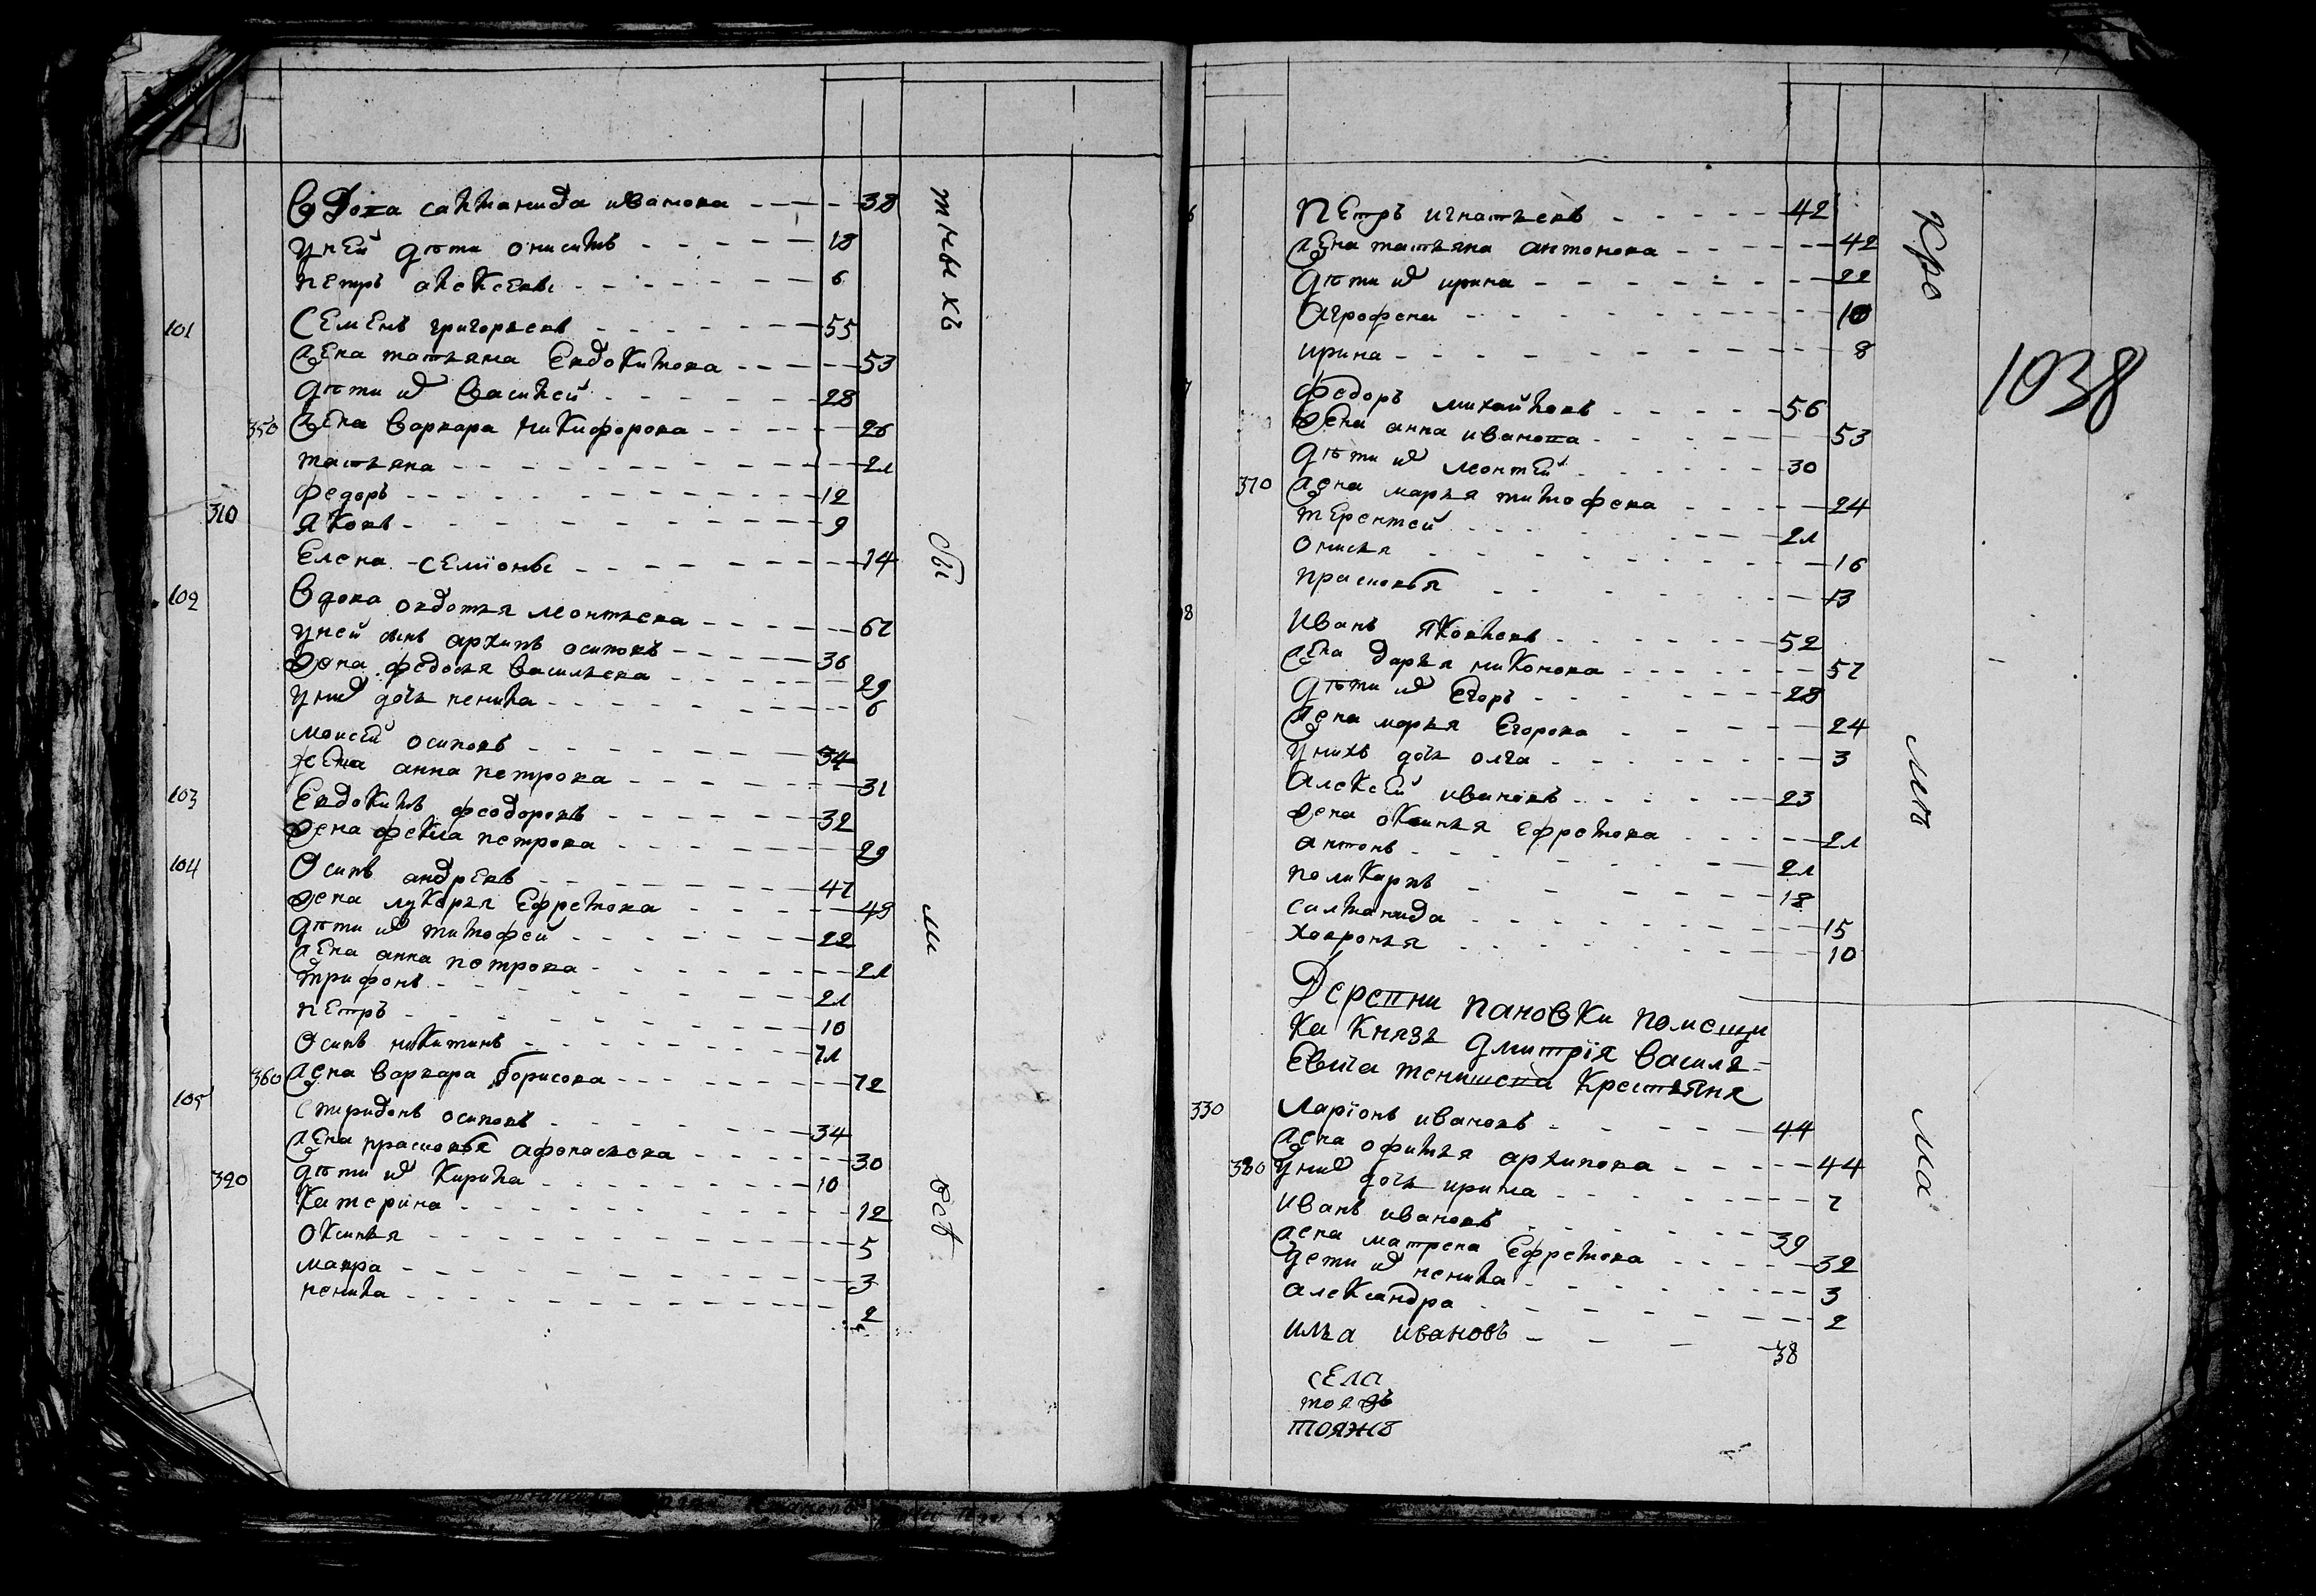 Вдова салманида иванова 38
уней дѣти онисимъ 18
петръ алексеевы 6
101 Семенъ григорьевъ 55
жена татьяна Евдокимова 53
дѣти их василей 28
350 жена варвара никифорова 26
татьяна 21
федоръ 12
310 яковъ 9
Елена семионы 14
102 Вдова овдотья леонтьева 67
уней сынъ архипъ осиповъ 36
жена федосья васильева 29
уних дочь ненила 6
моисей осиповъ 34
жена анна петрова 31
103 Евдокимъ феодоровъ 32
жена фекла петрова 29
104 Осипъ андреевъ 47
жена лукерья Ефремова 48
дѣти их тимофей 22
жена анна петрова 21
трифонъ 21
петръ 10
Осипъ никитинъ 71
360 жена варвара борисова 72
105 спиридонъ осиповъ 34
жена прасковья афонасьева 30
320 дѣти их Кирила 10
Катерина 12
оксинья 5
мавра 3
ненила 2
тныхъ
сы
ли
всѣ
Петръ игнатьевъ 42
жена татьяна антонова 42
дѣти их ирина 22
Агрофена 10
ирина 8
федоръ михайловъ 56
жена анна иванова 53
дѣти их леонтей 30
370 жена марья тимофева 24
терентей 21
онисья 16
прасковья 13
8 Иванъ яковлевъ 52
жена дарья никонова 57
дѣти их Егоръ 28
жена марья Егорова 24
унихъ дочь олга 3
Алексей ивановъ 23
жена оксинья ефремова 21
антонъ 21
поликарпъ 18
салманида 15
хавронья 10
Деревни пановки помещи
ка Князь дмитрія василь-
евича тенишева Крестьяня
330 Ларїонъ ивановъ 44
жена офимья архипова 44
380 уних дочь ирина 7
иванъ ивановъ 39
жена матрена Ефремова 32
дети их ненила 3
александра 2
илья ивановъ 38
села
тояжъ
тояжъ
кро
мит
ма
1038